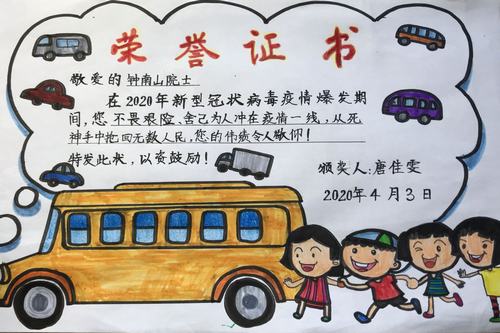 荣誉证书
敬爱的 钟南山院士
在2020年新型冠状病毒疫情爆发期
间,您 不畏艰险、舍己为人冲在疫情一线,从死
神手中抢回无数人民,您的伟绩令人敬仰!
特发此状,以资鼓励!
颁奖人:唐佳雯
2020年4月3日